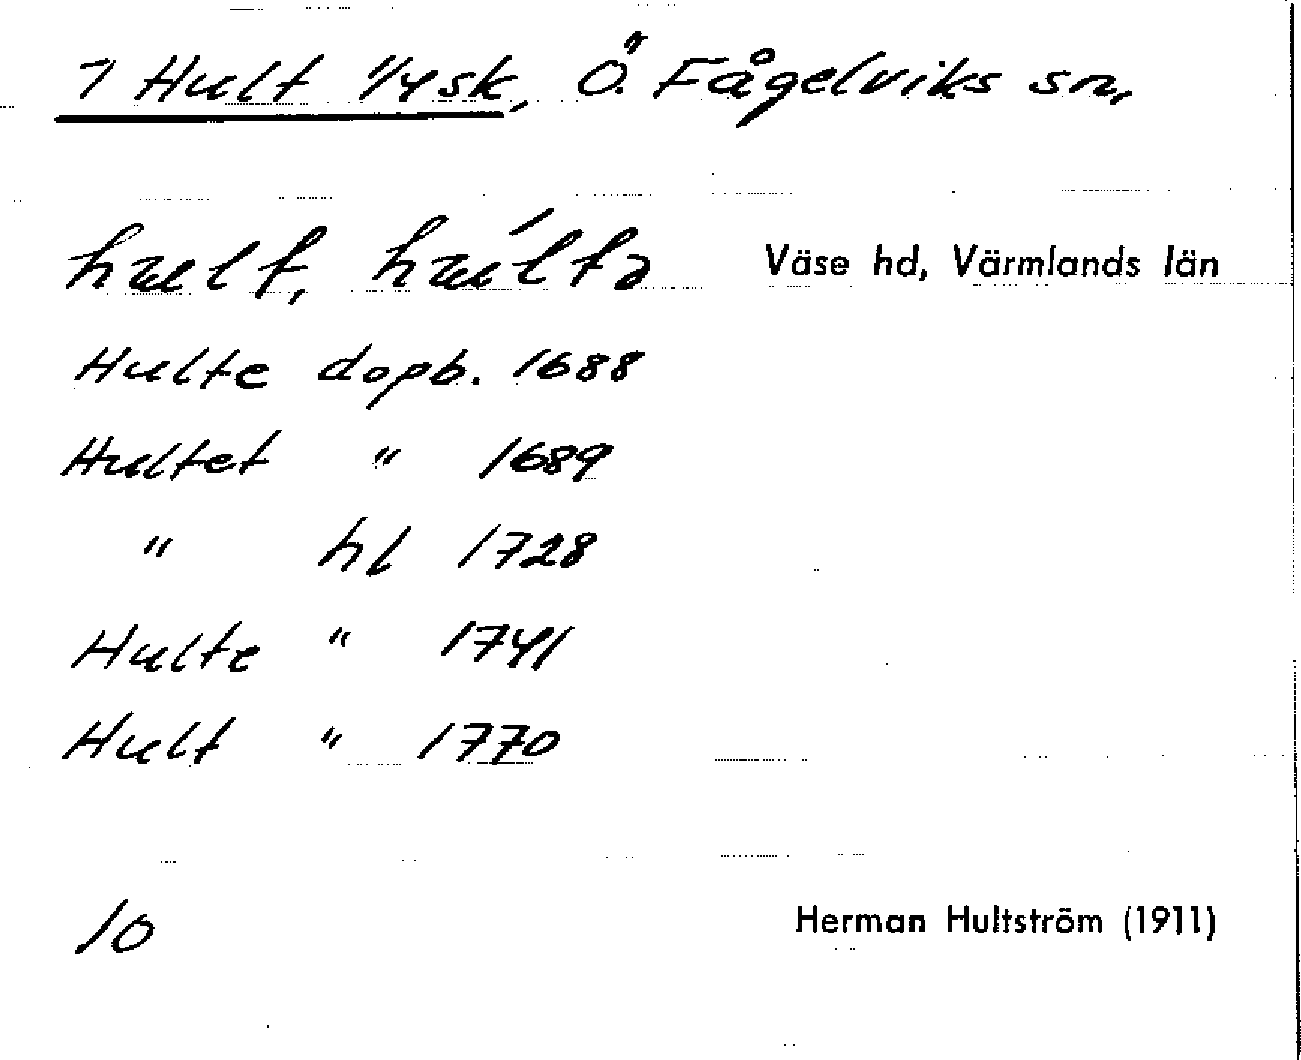 7 Hult 1/4 sk, Ö. Fågelviks sn,
hult, húltə Väse hd, Värmlands län
Hulte dopb. 1688
Hultet " 1689
" hl 1728
Hulte " 1741
Hult " 1770
10 Herman Hultström (1911)